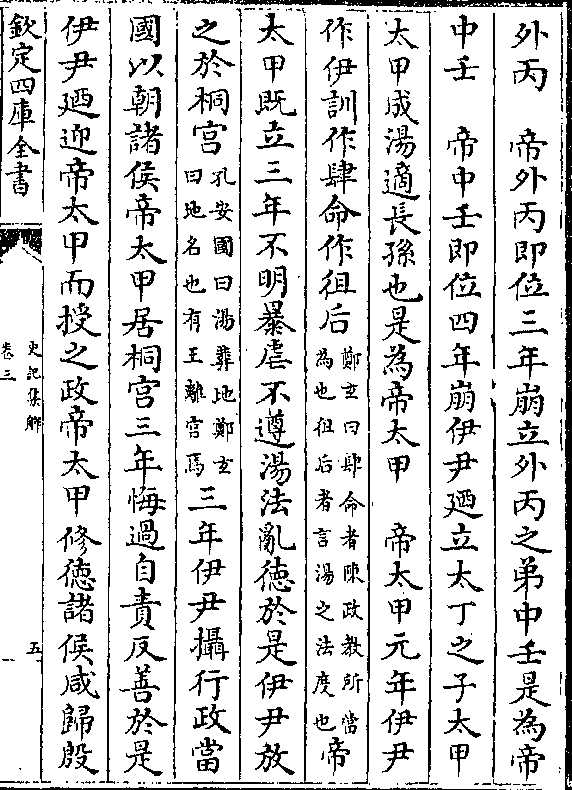 外丙　帝外丙即位三年崩立外丙之弟中壬是為帝
中壬　帝中壬即位四年崩伊尹廼立太丁之子太甲
太甲成湯適長孫也是為帝太甲　帝太甲元年伊尹
作伊訓作肆命作徂后鄭玄曰肆命者陳政教所當為也徂后者言湯之法度也帝
太甲既立三年不明暴虐不遵湯法亂徳於是伊尹放
之於桐宫孔安國曰湯葬地鄭玄曰地名也有王離宫焉三年伊尹攝行政當
國以朝諸侯帝太甲居桐宫三年悔過自責反善於是
伊尹廼迎帝太甲而授之政帝太甲修徳諸侯咸歸殷
欽定四庫全書
史記集解
卷三
五